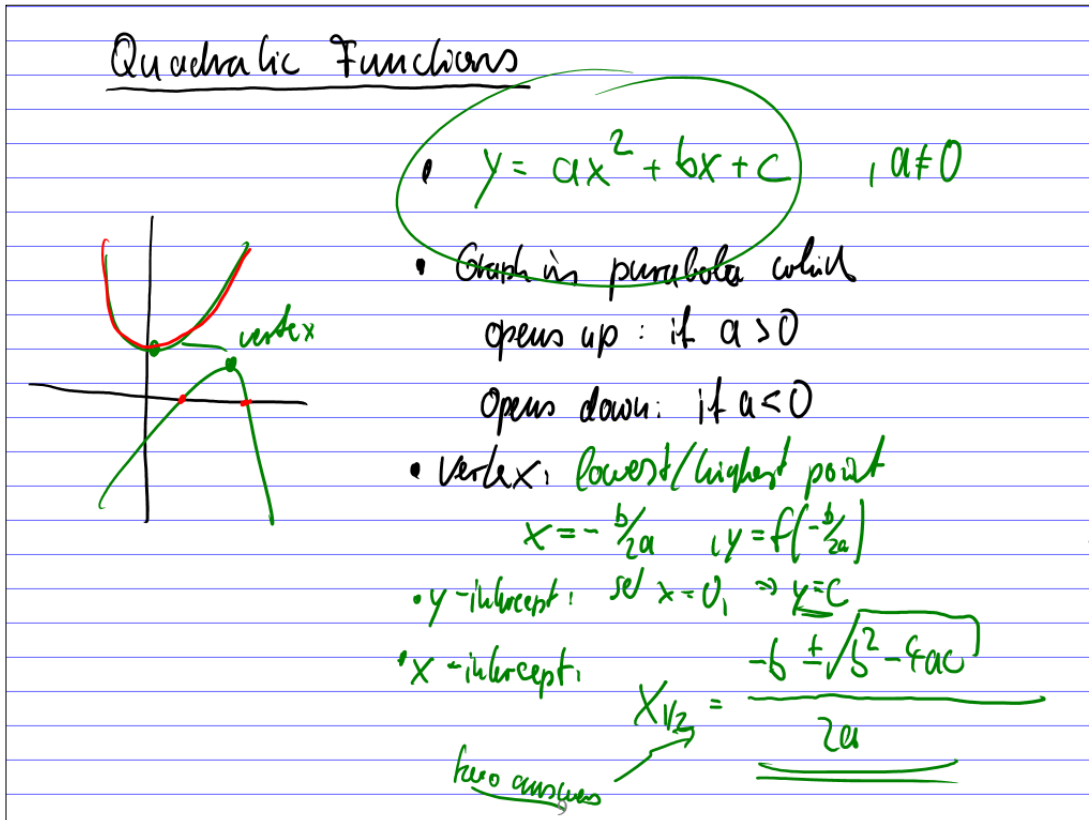 Quadratic Functions
• y = ax² + bx + c , a ≠ 0
• Graph is parabola which
opens up : if a > 0
vertex
opens down: if a < 0
• vertex: lowest/highest point
x = - b/2a , y = f(-b/2a)
• y-intercept: set x = 0, ⇒ y = c
• x-intercept:
X1/2 = (-b ± √(b² - 4ac)) / 2a
two answers